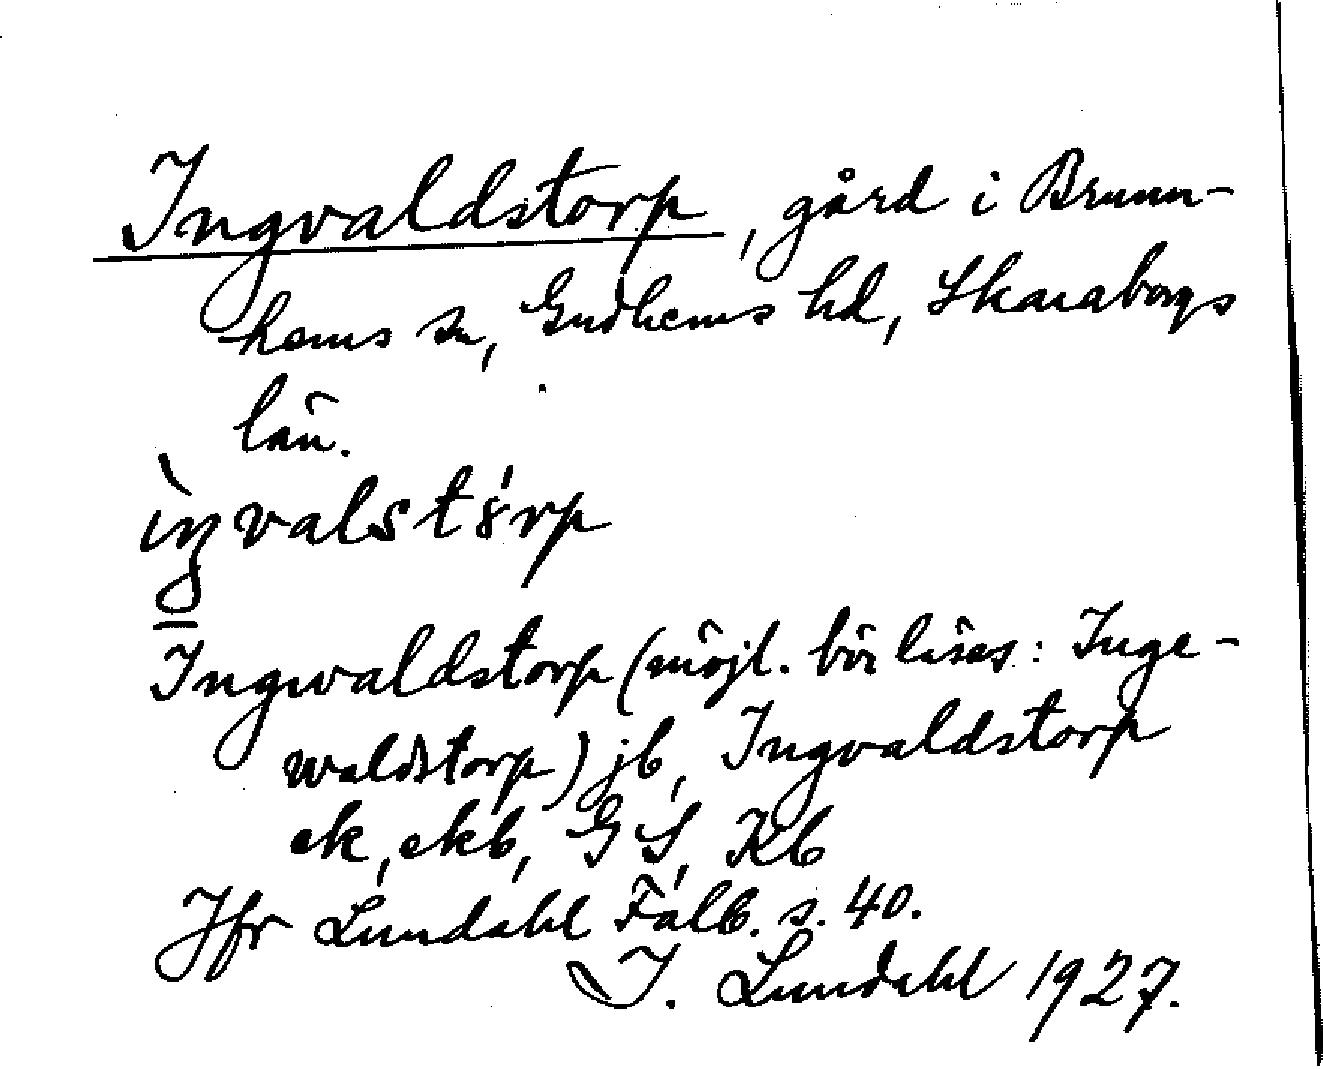 Ingvaldstorp, gård i Brunn-
hems sn, Gudhems hd, Skaraborgs
län.
ìŋvalstórp
Ingwaldstorp (möjl. bör läsas: Inge-
waldstorp) jb, Ingvaldstorp
ek, ekb, GS, Kb
Jfr Lundahl Falb. s. 40.
I. Lundahl 1927.